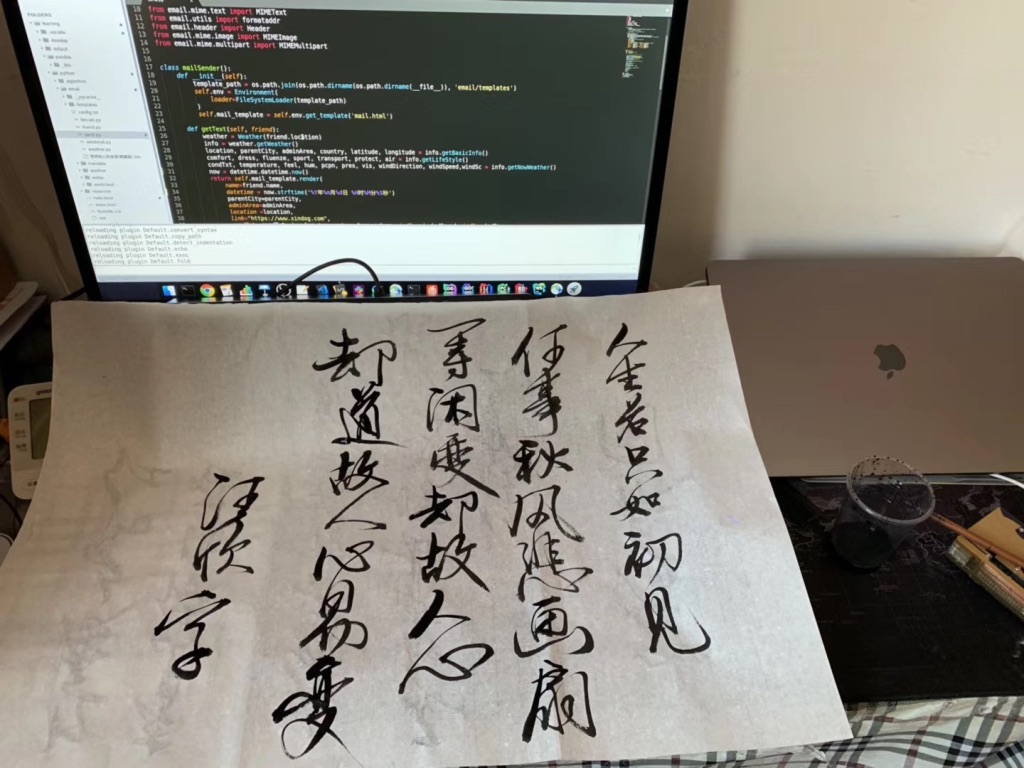 FOLDERS
10 from email.mime.text import MIMEText
11 from email.utils import formataddr
12 from email.header import Header
13 from email.mime.image import MIMEImage
14 from email.mime.multipart import MIMEMultipart
15
16
17 class mailSender():
18 def __init__(self):
19 template_path = os.path.join(os.path.dirname(os.path.dirname(__file__)), 'email/templates')
20 self.env = Environment(
21 loader=FileSystemLoader(template_path)
22 )
23 self.mail_template = self.env.get_template('mail.html')
24
25 def getText(self, friend):
26 weather = Weather(friend.location)
27 info = weather.getWeather()
28 location, parentCity, adminArea, country, latitude, longitude = info.getBasicInfo()
29 comfort, dress, fluenze, sport, transport, protect, air = info.getLifeStyle()
30 condTxt, temperature, feel, hum, pcpn, pres, vis, windDirection, windSpeed,windSc = info.getNowWeather()
31 now = datetime.datetime.now()
32 return self.mail_template.render(
33 name=friend.name,
34 datetime = now.strftime("%Y年%m月%d日 %H时%M分%S秒")
35 parentCity=parentCity,
36 adminArea=adminArea,
37 location =location,
38
reloading plugin Default.convert_syntax
reloading plugin Default.copy_path
reloading plugin Default.detect_indentation
reloading plugin Default.echo
reloading plugin Default.exec
reloading plugin Default.fold
人生若只如初见
何事秋风悲画扇
等闲变却故人心
却道故人心易变
汪欣字